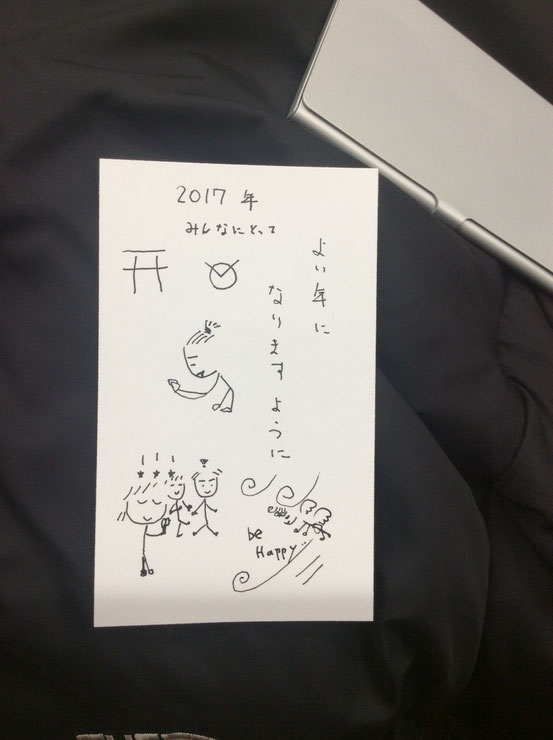 2017年
みんなにとって
よい年に
なりますように
be
Happy